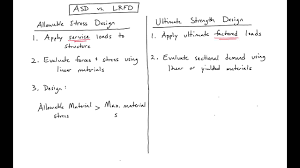 ASD vs. LRFD
Allowable Stress Design
1. Apply service loads to
structure
2. Evaluate forces + stress using
linear materials
3. Design:
Allowable Material > Max. material
stress s
Ultimate Strength Design
1. Apply ultimate factored loads
2. Evaluate sectional demand using
linear or yielded materials